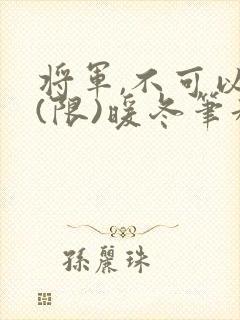 將軍,不可以
(限)暖冬筆
孫麗珠